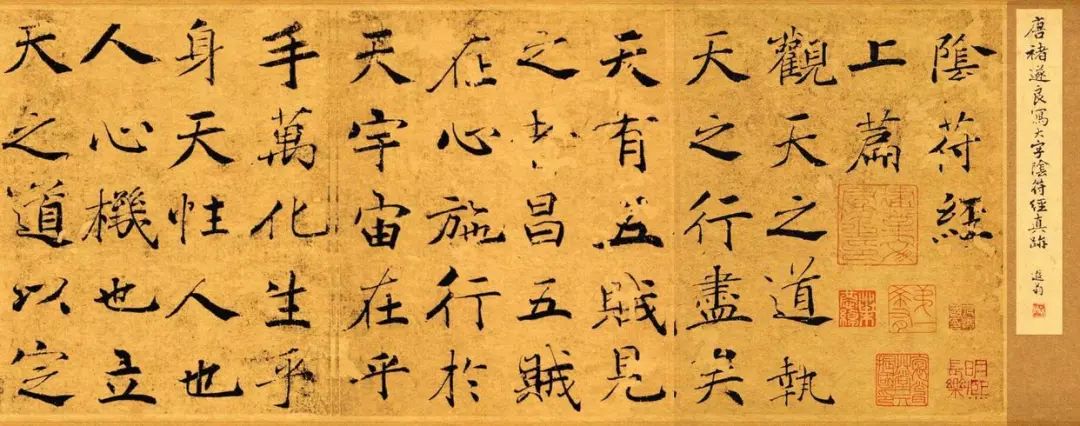 唐褚遂良寫大字陰符經真跡 遐翁
陰符經
上篇
觀天之道執
天之行盡矣
天有五賊見
之者昌五賊
在心施行於
天宇宙在乎
手萬化生乎
身天性人也
人心機也立
天之道以定